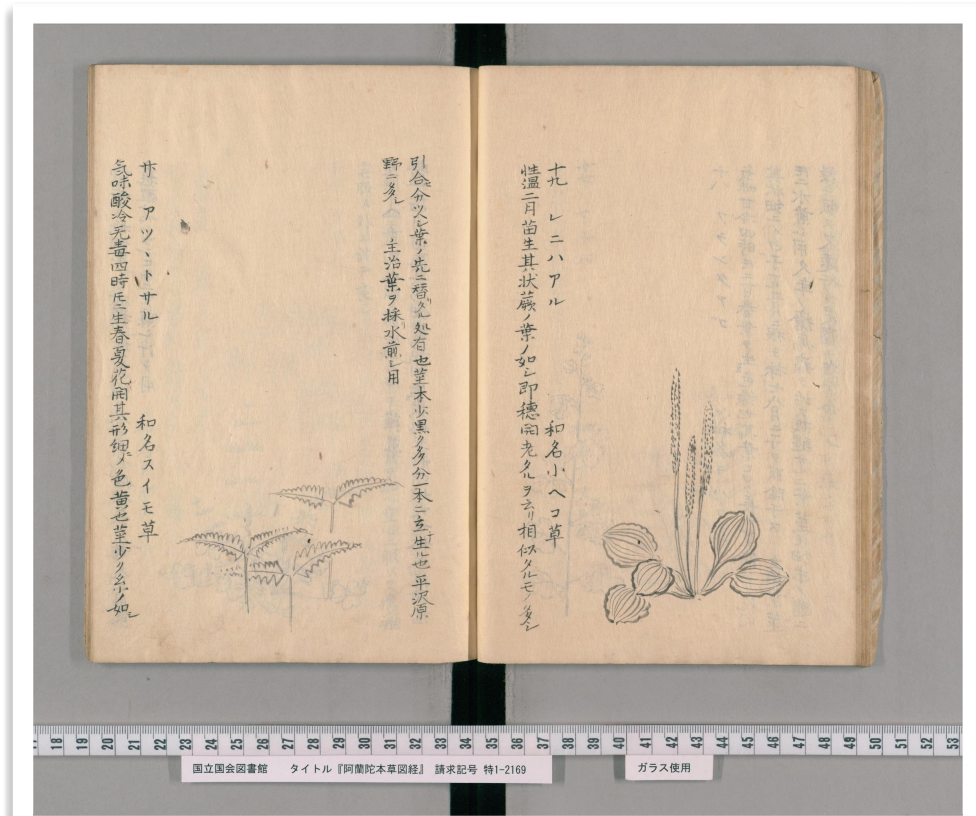 十九 レニハアル 和名小ヘコ草
性温二月苗生其状蕨ノ葉ノ如シ即穂開老タルヲ云リ相似タルモノ多シ
引合分ツヘシ葉ノ先ニ替タル処有也茎本少黒ク多分一本ニ立生ル也平沢原
野ニ多シ 主治葉ヲ採水煎シ用
廿 アツヽトサル 和名スイモ草
気味酸冷无毒四時トモニ生春夏花開其形細ク色黄也茎少ク糸ノ如シ
17 18 19 20 21 22 23 24 25 26 27 28 29 30 31 32 33 34 35 36 37 38 39 40 41 42 43 44 45 46 47 48 49 50 51 52 53
国立国会図書館 タイトル『阿蘭陀本草図経』 請求記号 特1-2169
ガラス使用